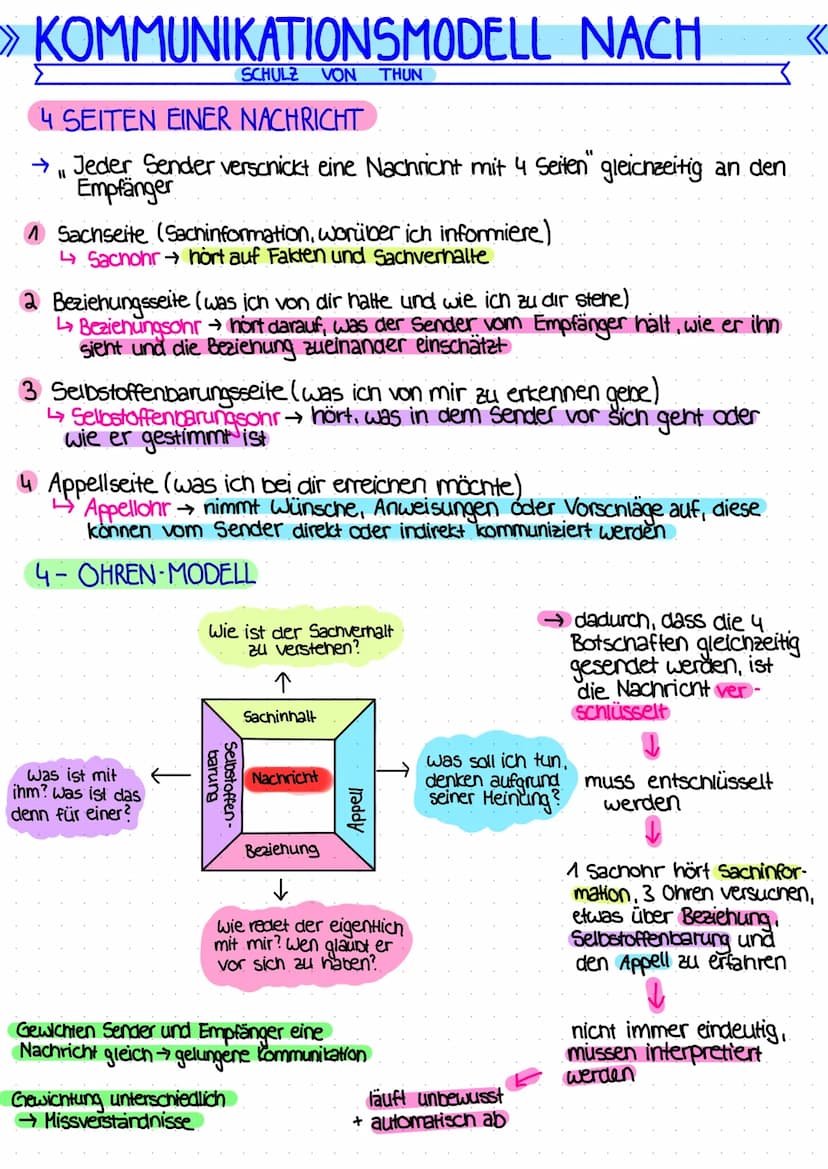 KOMMUNIKATIONSMODELL NACH
SCHULZ VON THUN
4 SEITEN EINER NACHRICHT
→ „Jeder Sender verschickt eine Nachricht mit 4 Seiten" gleichzeitig an den
Empfänger
1 Sachseite (Sachinformation, worüber ich informiere)
↳ Sachohr → hört auf Fakten und Sachverhalte
2 Beziehungsseite (was ich von dir halte und wie ich zu dir stehe)
↳ Beziehungsohr → hört darauf, was der Sender vom Empfänger hält, wie er ihn
sieht und die Beziehung zueinander einschätzt
3 Selbstoffenbarungsseite (was ich von mir zu erkennen gebe)
↳ Selbstoffenbarungsohr → hört, was in dem Sender vor sich geht oder
wie er gestimmt ist
4 Appellseite (was ich bei dir erreichen möchte)
↳ Appellohr → nimmt Wünsche, Anweisungen oder Vorschläge auf, diese
können vom Sender direkt oder indirekt kommuniziert werden
4 - OHREN-MODELL
Wie ist der Sachverhalt
zu verstehen?
Sachinhalt
Selbstoffen-
barung
Nachricht
Appell
Beziehung
Was ist mit
ihm? Was ist das
denn für einer?
Was soll ich tun,
denken aufgrund
seiner Meinung?
Wie redet der eigentlich
mit mir? Wen glaubt er
vor sich zu haben?
→ dadurch, dass die 4
Botschaften gleichzeitig
gesendet werden, ist
die Nachricht ver-
schlüsselt
↓
muss entschlüsselt
werden
↓
1 Sachohr hört Sachinfor-
mation, 3 Ohren versuchen,
etwas über Beziehung,
Selbstoffenbarung und
den Appell zu erfahren
↓
nicht immer eindeutig,
müssen interpretiert
werden
läuft unbewusst
+ automatisch ab
Gewichten Sender und Empfänger eine
Nachricht gleich → gelungene Kommunikation
Gewichtung unterschiedlich
→ Missverständnisse